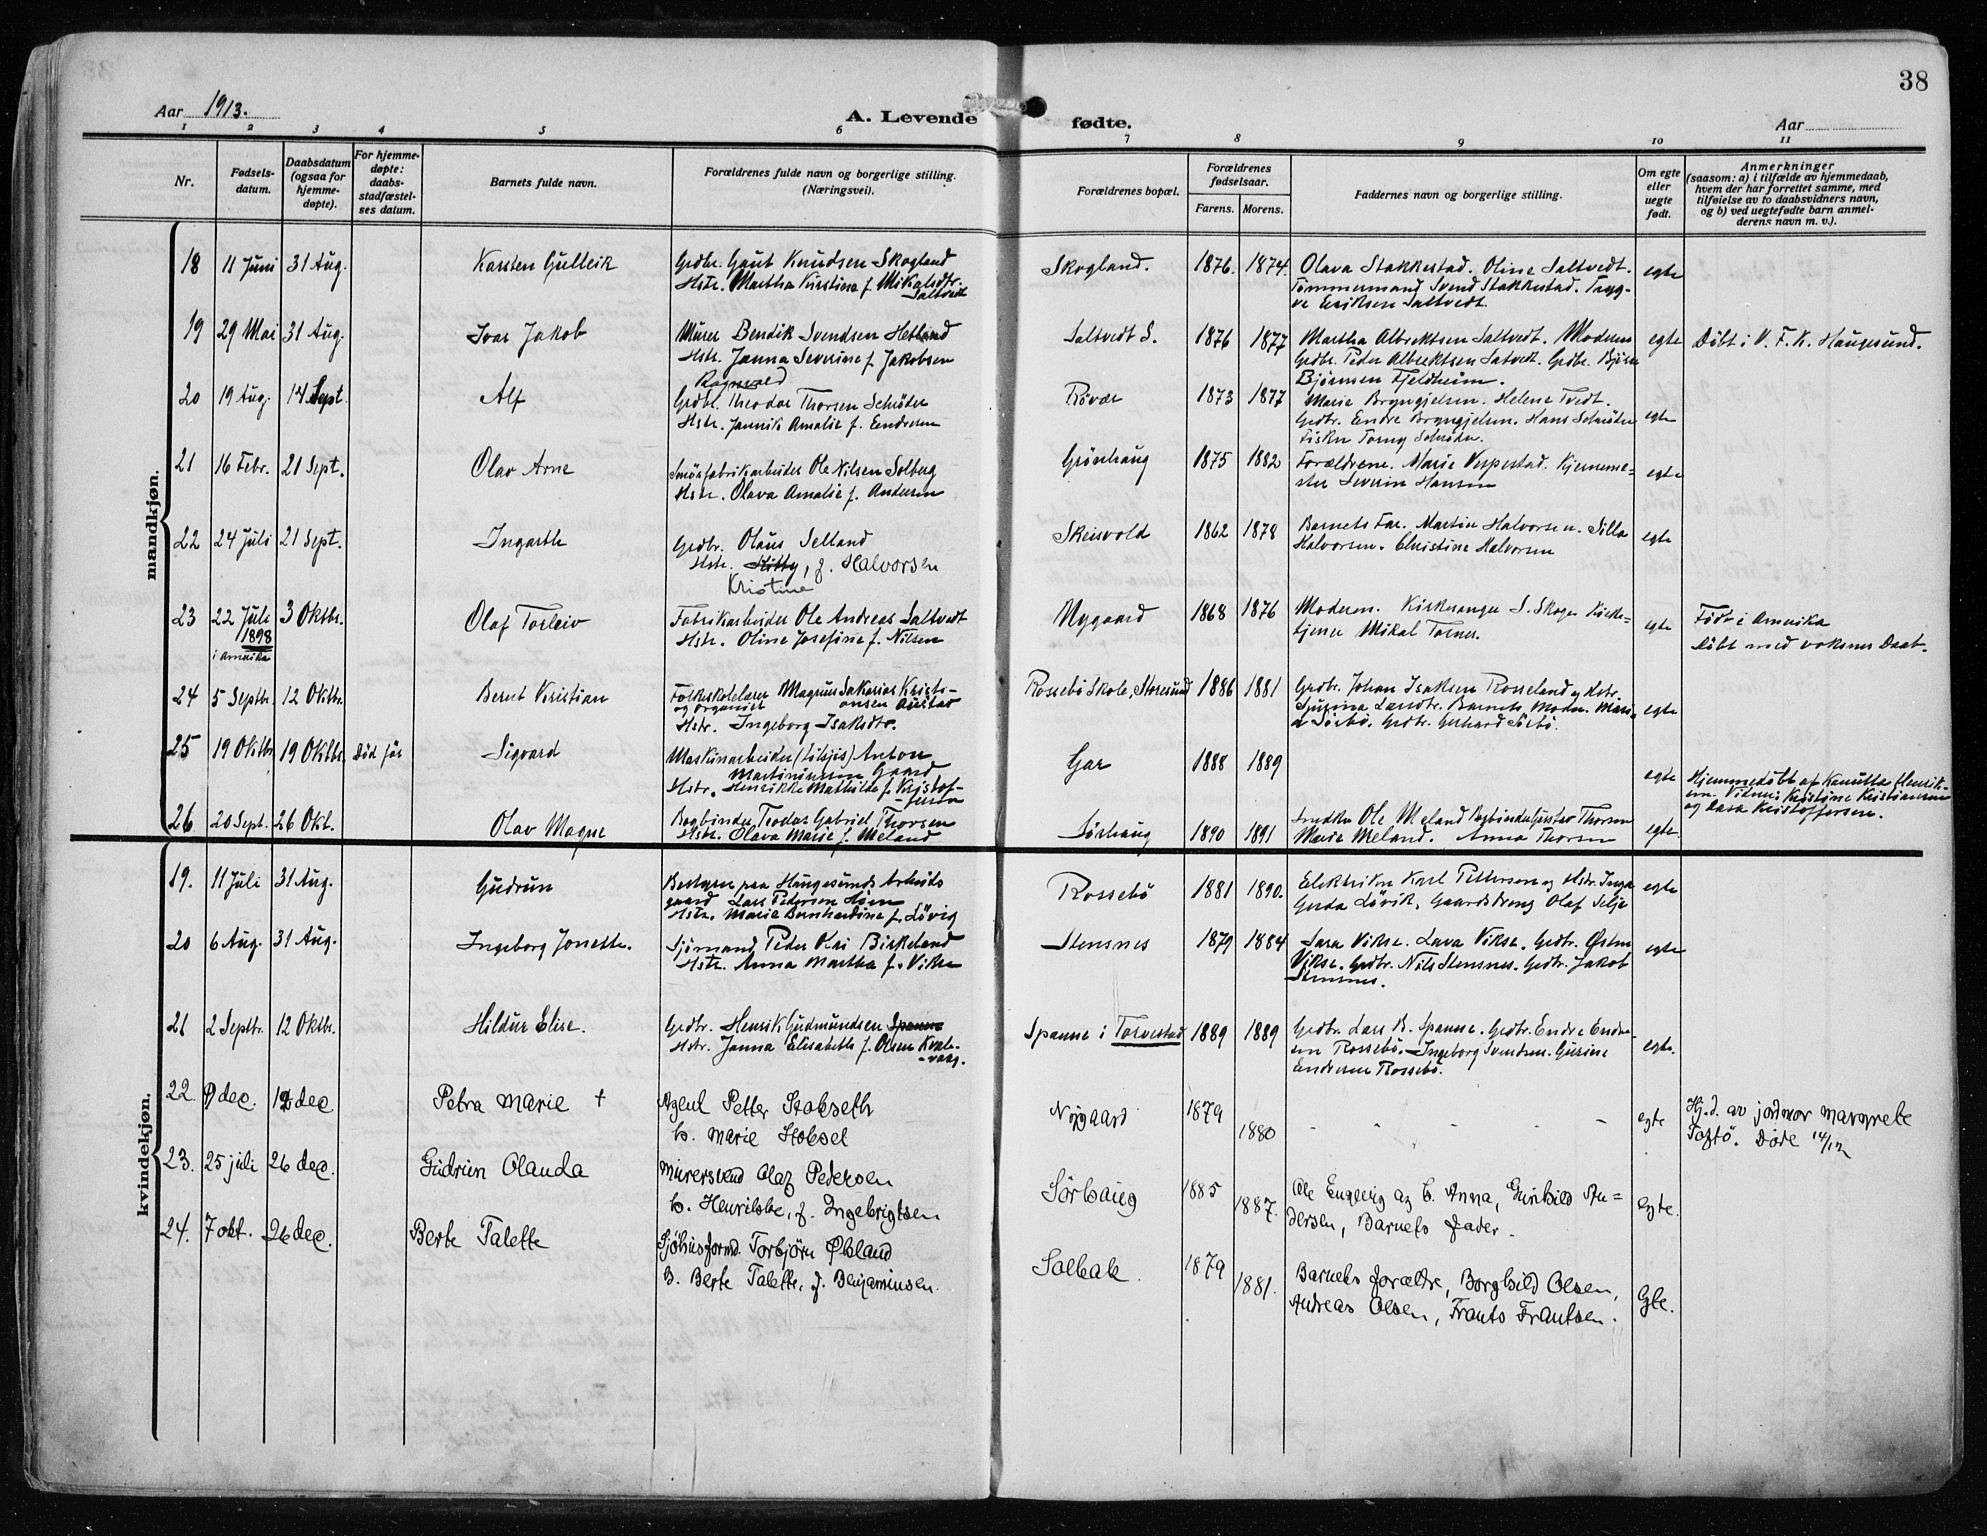 38
Aar 1913.
A. Levende fødte.
Aar
1 2 3 4 5 6 7 8 9 10 11
Nr.
Fødsels-
datum.
Daabsdatum
(ogsaa for
hjemme-
døpte).
For hjemme-
døpte:
daabs-
stadfæstel-
ses datum.
Barnets fulde navn.
Forældrenes fulde navn og borgerlige stilling.
(Næringsvei).
Forældrenes bopæl.
Forældrenes
fødselsaar.
Farens. Morens.
Faddernes navn og borgerlige stilling.
Om egte
eller
uegte
født.
Anmerkninger
(saasom: a) i tilfælde av hjemmedaab,
hvem der har forrettet samme, med
tilføielse av to daabsvidners navn,
og b) ved uegtefødte barn anmel-
derens navn m. v.).
mandkjøn.
18 11 Juni 31 Aug. Karsten Gulleik Grdbr. Gaut Knudsen Skogland Skogland. 1876. 1874. Olava Stakkestad. Oline Saltvedt. egte
Hstr. Martha Kirstine f. Mikalsdtr. Tømmermand Svend Stakkestad. Tryg-
Saltvedt ve Eriksen Saltvedt.
19 29 Mai 31 Aug. Ivar Jakob Murer Bendik Svendsen Hetland Saltvedt S. 1876 1877 Martha Albrektsen Saltvedt. Moderen egte Døbt i V. F. K. Haugesund.
Hstr. Janna Severine f. Jakobsen Grdbr. Peder Albrektsen Saltvedt. Grdbr. Bjørn
Ragnvald Bjørnsen Fjeldheim.
20 19 Aug. 14 Sept. Alf Grdbr. Theodor Thorsen Schrøder Røvær 1873 1877 Marie Bryngjelsen. Helene Tvedt. egte
Hstr. Jannik Amalie f. Endresen Grdbr. Endre Bryngjelsen. Hans Schrøder
Fisker Torny Schrøder.
21 16 Febr. 21 Sept. Olav Arne Smørfabrikarbeider Ole Nilsen Solberg Grønhaug 1875 1882 Forældrene. Marie Vespestad. Kjerneme- egte
Hstr. Olava Amalie f. Andersen ster Severin Hansen
22 24 Juli 21 Sept. Ingarth Grdbr. Olaus Selland Skeisvold 1862 1878 Barnets Far. Martin Halvorsen. Silla egte
Hstr. Kitty, f. Halvorsen Halvorsen. Christine Halvorsen
Kristine
23 22 Juli 3 Oktbr. Olaf Torleiv Fabrikarbeider Ole Andreas Saltvedt Nygaard 1868 1876 Moderen. Kirkesanger S. Skoge Kirke- egte Født i Amerika
1898 Hstr. Oline Josefine f. Nilsen tjener Mikal Tornes. Døbt med voksnes Daab.
i Amerika
24 5 Septbr. 12 Oktbr. Bernt Kristian Folkeskolelærer Magnus Sakarias Kristi- Rossebø Skole, Storesund 1886 1881 Grdbr. Johan Isaksen Rosseland og Hstr. egte
og organist ansen Aarstad Larsdtr. Barnets Moder. Mari-
Hstr. Ingeborg Isaksdtr. Sørbø. Grdbr. Gerhard Sørbø.
25 19 Oktbr 19 Oktbr. Død før Sigvard Maskinarbeider Anton Gar 1888 1889 egte Hjemmedøbt af Kanutta Henrik-
Martiniussen Gaard sen. Vidner Kristine Kristiansen
Hstr. Henrikke Mathilde f. Kristof- og Lara Kristoffersen.
fersen
26 20 Sept. 26 Okt. Olav Magne Bogbinder Teodor Gabriel Thorsen Sørhaug 1890 1891 Snedker Ole Meland Bogbinder Gustav Thorsen egte
Hstr. Olava Marie f. Meland Marie Meland. Anna Thorsen
kvindekjøn.
19. 11 Juli 31 Aug. Gudrun Bestyrer paa Haugesunds Arbeids Rossebø 1881 1890. Elektriker Karl Pettersen og Hstr. Inga egte
gaard Lars Pedersen Hjem Gerda Løvik, Gaardsdreng Olaf Selje
Hstr. Marie Bernhardine f. Løvig
20 6 Aug. 31 Aug. Ingeborg Jonette. Sjømand Peder Olai Birkeland Stensnes 1879 1884 Sara Vikse. Lava Vikse. Grdbr. Østen egte
Hstr. Anna Martha f. Vikse Vikse. Grdbr. Nils Stensnes. Grdbr. Jakob
Stensnes.
21 2 Septbr. 12 Oktbr. Hildur Elise. Grdbr. Henrik Gudmundsen Spanne Spanne i Torvestad 1889 1889 Grdbr. Lars B. Spanne. Grdbr. Endre Endre- egte.
Hstr. Janna Elisabeth f. Olsen Kvale- sen Rossebø. Ingeborg Svendsen. Gurine
vaag. Endresen Rossebø.
22. 9 dec. 12 dec Petra Marie + Agent Petter Stokseth Nygaard 1879 1880 - - - - - egte Hj. d. av jordmor Margrete
h. Marie Stoksel Toftø. Døde 14/12
23. 25 juli 26 dec. Gudrun Olauda Murersvend Olaf Pedersen Sørhaug 1885 1887. Ole Engevig og h. Anna, Gunhild An- Egte.
h. Henrikke, f. Ingebrigtsen dersen, Barnets fader.
24. 7 okt. 26 dec. Berte Talette Sjøhusformd. Torbjørn Økland Solbak. 1879 1881. Barnets forældre, Borghild Olsen, Egte.
h. Berte Talette, f. Benjaminsen. Andreas Olsen, Frants Frantsen.